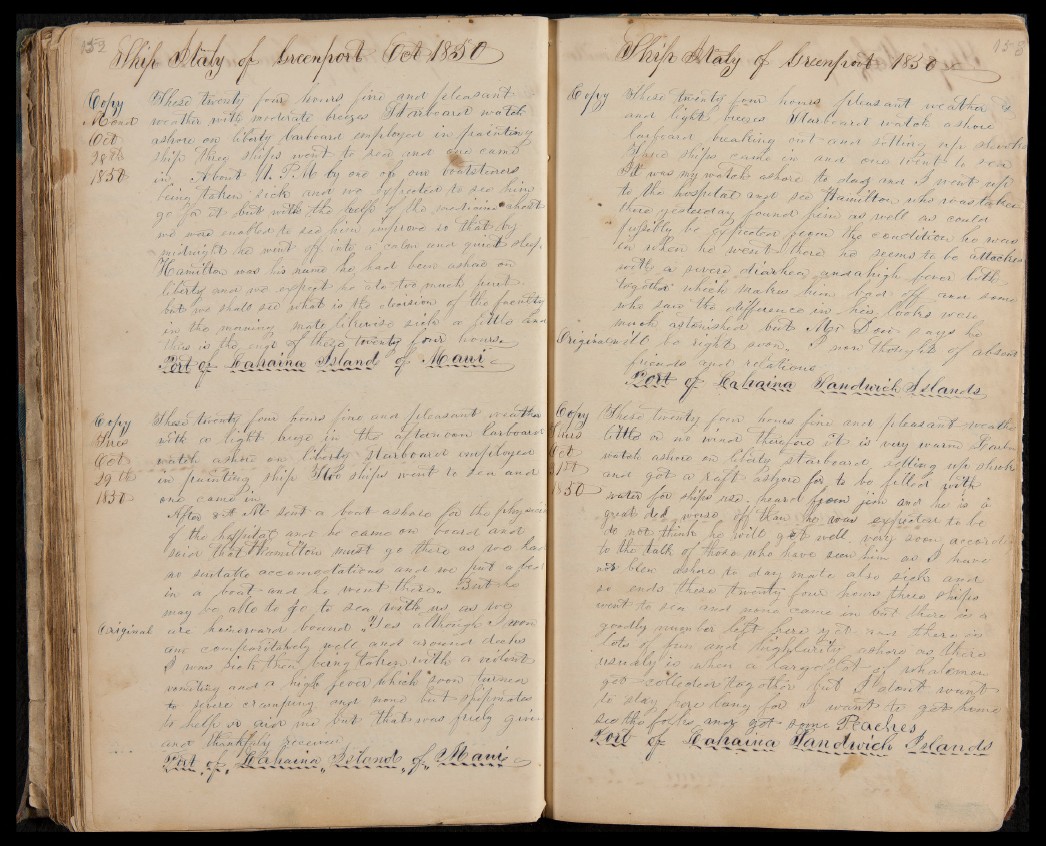 152
Ship Italy of Greenport Oct 1850
Copy These twenty four hours fine and pleasant
Mond weather with moderate breezes Starboard watch
Oct ashore on liberty larboard employed in painting
28th ship three ships went to sea and one came
1850 in About 11 P.M. by one of our boatsteerers
being taken sick and we expected to see him
go for it but with the help of the medicine chest
we were enabled to see him improve so that by
midnight he went off into a calm and quiet sleep
Hamilton was his name he had been ashore on
liberty and we expect he ate too much fruit
but we shall see what is the decision of the faculty
in the morning mate likewise sick a little and
this is the end of these twenty four hours
Port of Lahaina Island of Maui
Copy These twenty four hours fine and pleasant weather
Tues with a light breeze in the afternoon larboard
Oct watch ashore on liberty starboard employed
29th in painting ship Two ships went to sea and
1850 one came in
After 8 A M sent a boat ashore for the physician
of the hospital and he came on board and
said that Hamilton must go there as we had
no suitable accomodations and we put a bed
in a boat and he went there. But he
may be able to go to sea with us as we
Original are homeward bound Yes although I soon
am comparitively well and around
I was sick then being taken with a violent
vomiting and a high fever which soon turned
to severe cramping and none but shipmates
to help or aid me but that was freely given
and thankfully received
Port of Lahaina Island of Maui
153
Ship Italy of Greenport 1850
Copy These twenty four hours pleasant weather &
and light breezes Starboard watch ashore
larboard breaking out and setting up shooks
ships came in and one went to sea
It was my watch ashore to day and I went up
to the hospital and see Hamilton who was taken
there yesterday found him as well as could
possibly be expected from the condition he was
in when he went there he seems to be attacked
with a severe diarhea and a high fever both
together which makes him bad off and some
who saw the difference in his looks were
much astonished but Mr Dow says he
Original will be right soon. I now thought of absent
friends and relations
Port of Lahaina Sandwich Islands
Copy These twenty four hours fine and pleasant weather
Thurs little or no wind therefore it is very warm
Oct watch ashore on liberty starboard setting up shooks
31st and got a raft ashore for to be filled with
1850 water for ships use. heard from him and he is a
great deal worse off than he was expected to be
do not think he will get well very soon according
to the talk of those who have seen him as I have
not been ashore to day mate also sick and
so ends these twenty four hours three ships
went to sea and none came in but there is a
goodly number left here yet and there is
lots of fun and ashore as there
usually is when a large lot of whalemen
get collected together but I don't want
to stay here long for I want to get home
see the folks may get some Peaches
Port of Lahaina Sandwich Islands